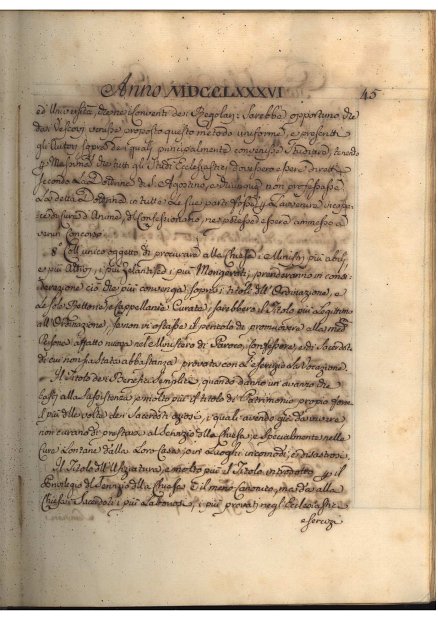 Anno MDCCLXXXVI 45
ed Università, che ne' Conventi de' Regolari: Sarebbe opportuno che
da' Vescovi venisse proposto questo metodo uniforme, e presenti
gli Autori sopra de' quali principalmente convenisse Studiare, tenendo
p Massima che tutti gli Studi Ecclesiastici dovessero essere diretti
secondo La Dottrina di S. Agostino, e chiunque non professasse
La detta Dottrina in tutte Le sue parti fosse
di cura d'Anime, di Confessionario, ne potesse essere ammesso a
verun Concorso.
8.° Coll'unico oggetto di procurare alla Chiesa i Ministri più abili,
e più attivi, i più zelanti, ed i più Morigerati, prenderanno in consi:
derazione ciò che più convenga sopra i titoli dell'Ordinazione, e
se Le sole Rettorie, e Cappellanie Curate, sarebbero il Titolo più legittimo
all'Ordinazione, se non vi ostasse il pericolo di promuovere alle med.e
Persone affatto nuove nel Ministero di Paroco, Confessore, e di Sacerdote
di cui non fu stata abbastanza provata con Le Servizio La Vocazione.
Il Titolo de' Benefizi Semplici, quando danno un avanzo che
basti alla sussistenza, e molto più il titolo di Patrimonio proprio forma
il più delle volte de' Sacerdoti oziosi, i quali avendo già da vivere
non curano di prestarsi al Servizio della Chiesa, e Specialmente nelle
Cure Lontane dalla Loro Casa, o in Luoghi incomodi, e disastrosi.
Il Titolo dell'Uffiziatura, e molto più il Titolo introdotto p il
Privilegio del Servizio della Chiesa è il meno Canonico, ma dà alla
Chiesa i Sacerdoti i più laboriosi, i più provati negli Ecclesiastici
e serviz